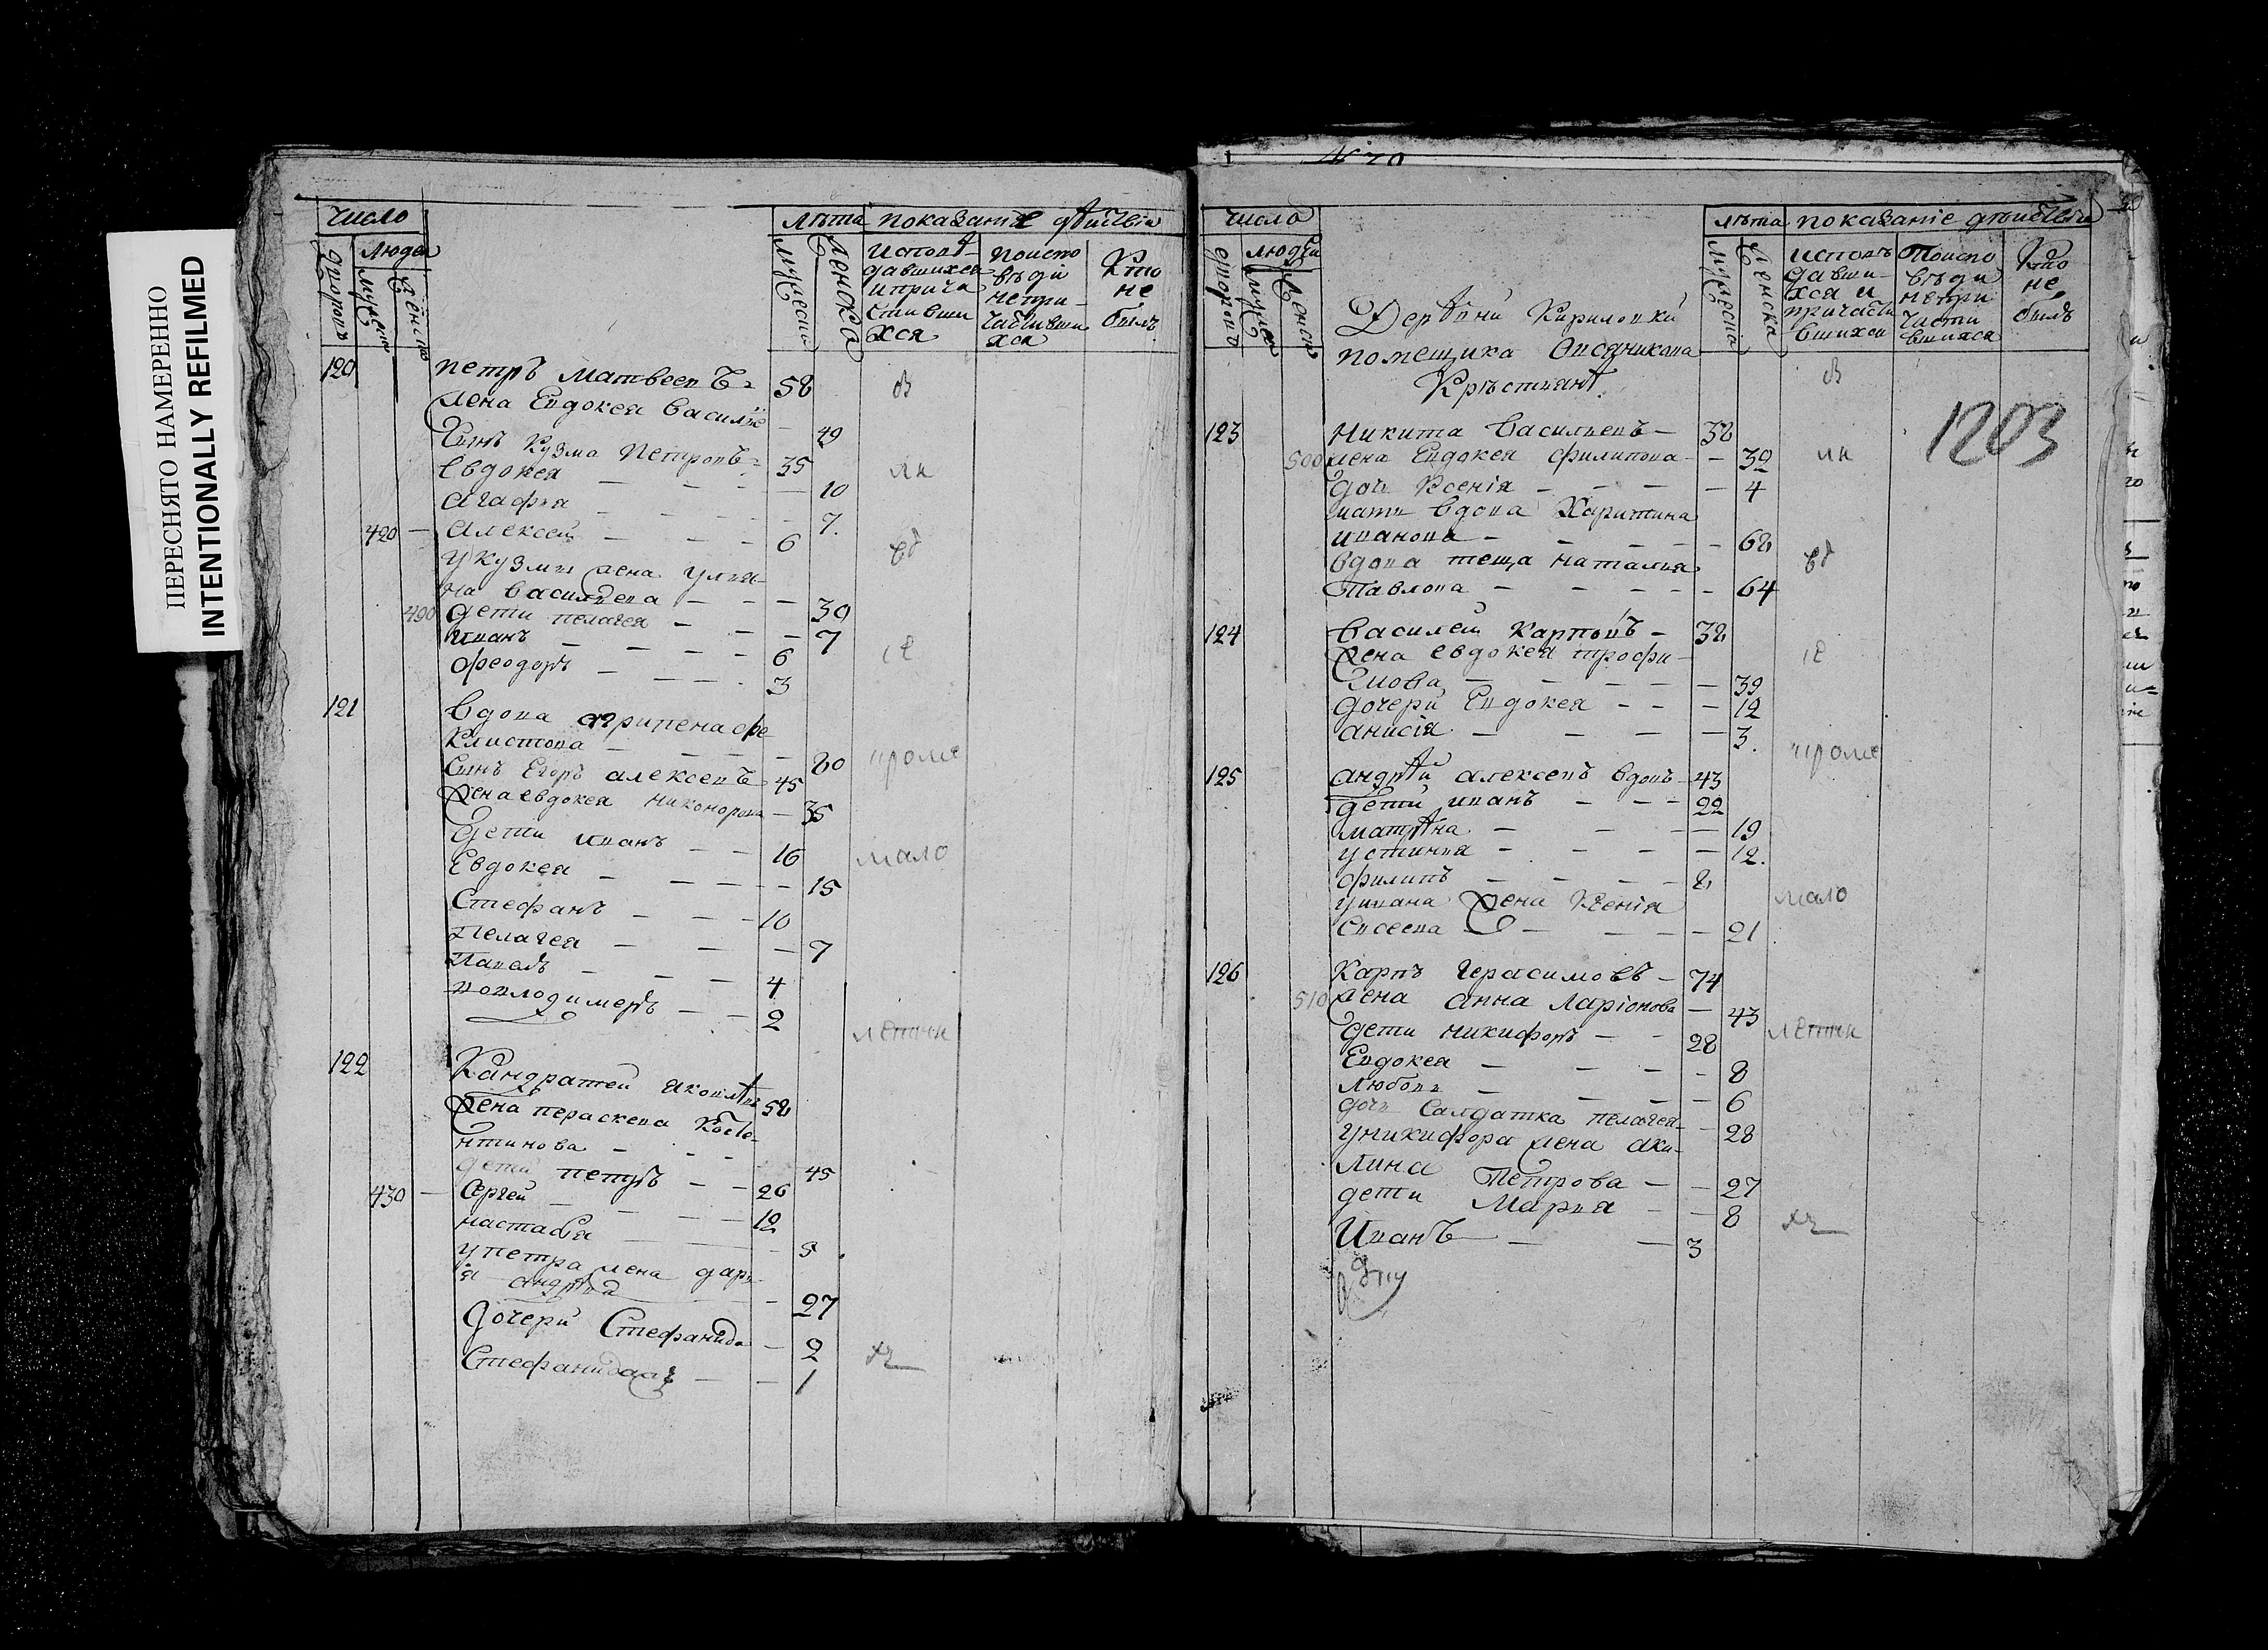 ПЕРЕСНЯТО НАМЕРЕННО
INTENTIONALLY REFILMED
число
людей
лѣта показание дѣйствія
Исповѣ
давшихся
и прича
стивши
хся
поиспо
вѣди
непри
частивши
хся
Кто
не
былъ
120 петръ матвеевъ 58
жена Евдокея василіе 49
Сынъ Кузма Петровъ 35
Евдокея — 10
агафья — 7
420 — алексей — 6
у кузмы жена улья
на васильева — 30
490 дети пелагея — 7
иванъ — 6
феодоръ — 3
121 вдова агрипена фе
клистова — 80
сынъ Егоръ алексевъ 45
жена евдокея никонорова — 35
дети иванъ — 16
Евдокея — 15
Стефанъ — 10
Пелагея — 7
Павелъ — 4
володимеръ — 2
122 Кандратей 58
жена пераскева Коста
нтинова — 45
дети петръ — 26
430 — Сергей — 12
настасья — 9
у петра жена дарь
я
27
Дочери Стефанида — 2
Стефанида — 1
въ
ни
ве
проме
мало
летни
число
людей
лѣта показаніе дѣйствія
исповѣ
давши
хся и
причасти
вшихся
поиспо
вѣди
непри
части
вшихся
Кто
не
былъ
Деревни Кириловки
помещика Овсяникова
Крѣстьянъ.
1203
123 Никита Васильевъ — 38
500 жена Евдокея филипова — 39
дочь Ксенія — 4
мать вдова Харитина
иванова — 68
вдова теща наталья
Павлова — 64
124 Василей карповъ — 38
жена евдокея трофи
мова — 39
дочери Евдокея — 12
анисія — 3
125 андрѣй алексевъ вдовъ — 43
дети иванъ — 22
матрѣна — 19
устинья — 12
филипъ — 8
у ивана жена Ксенія
Евсеева — 21
126 Карпъ Герасимовъ — 74
510 жена анна Ларіонова — 43
дети никифоръ — 28
Евдокея — 8
Любовь — 6
дочь Салдатка пелагея — 28
у никифора жена аку
лина Петрова — 27
дети Марья — 8
Иванъ — 3
проме
мало
летни